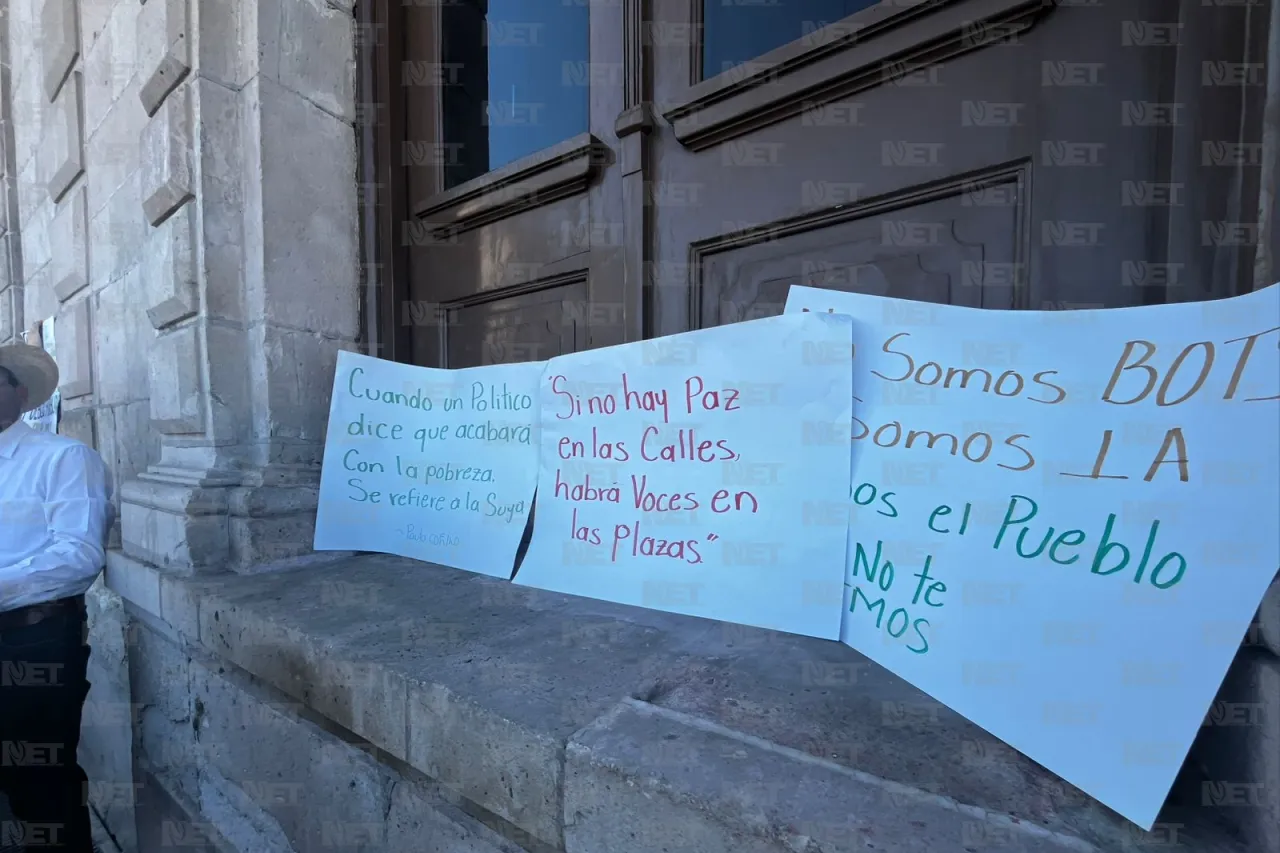 Cuando un Politico
dice que acabará
Con la pobreza.
Se refiere a la Suya
"Si no hay Paz
en las Calles,
habrá Voces en
las plazas."
Somos BOT
Somos IA
os el Pueblo
No te
MOS
NET